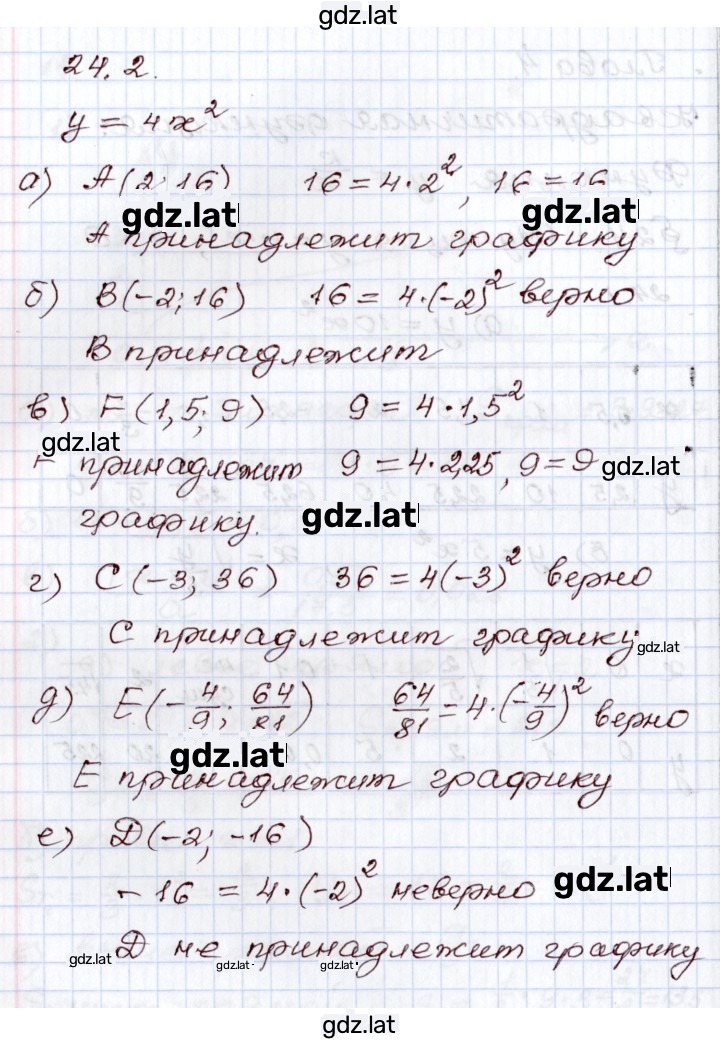 gdz.lat
24.2.
y = 4x²
а) A(2;16) 16 = 4·2², 16 = 16
gdz.lat gdz.lat
A принадлежит графику
б) B(-2;16) 16 = 4·(-2)² верно
B принадлежит
в) F(1,5; 9) 9 = 4·1,5²
gdz.lat
F принадлежит 9 = 4·2,25, 9 = 9 gdz.lat
графику. gdz.lat
г) C(-3; 36) 36 = 4(-3)² верно
C принадлежит графику gdz.lat
д) E(-4/9; 64/81) 64/81 = 4·(-4/9)² верно
gdz.lat
E принадлежит графику
е) D(-2; -16)
-16 = 4·(-2)² неверно gdz.lat
gdz.lat D не принадлежит графику
gdz.lat gdz.lat
gdz.lat